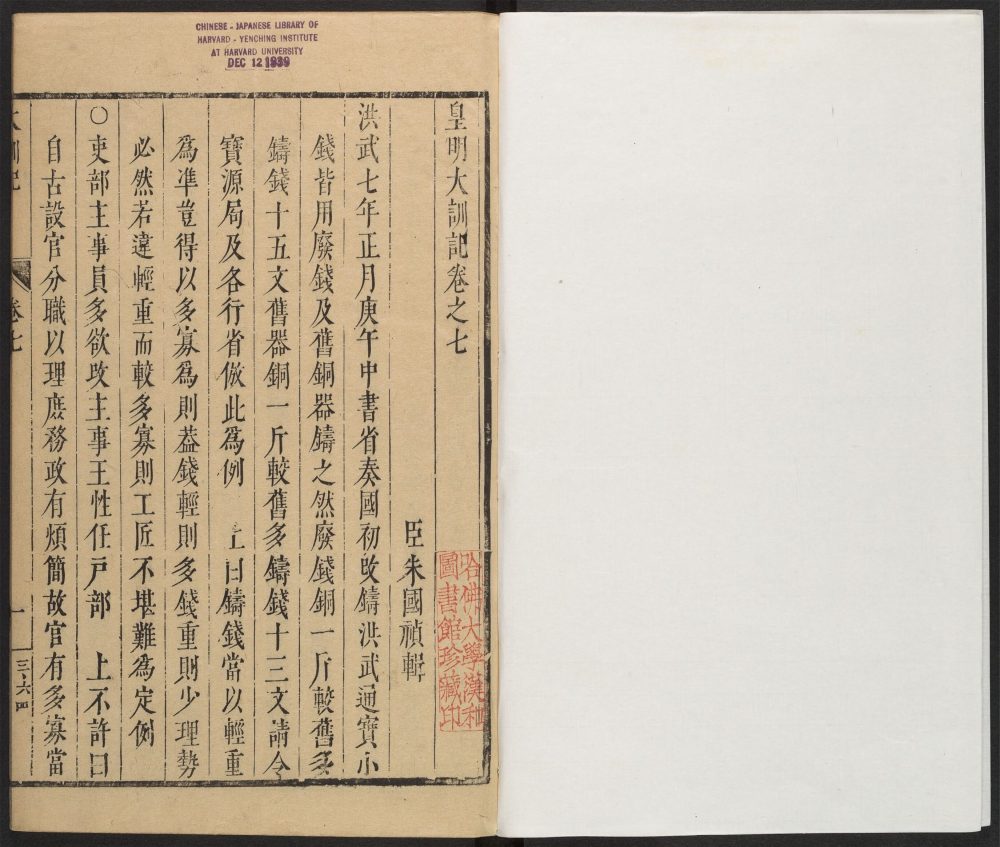 CHINESE - JAPANESE LIBRARY OF
HARVARD - YENCHING INSTITUTE
AT HARVARD UNIVERSITY
DEC 12 1939
皇明大訓記卷之七
臣朱國禎輯
洪武七年正月庚午中書省奏國初改鑄洪武通寶小
錢皆用廢錢及舊銅器鑄之然廢錢銅一斤較舊多
鑄錢十五文舊器銅一斤較舊多鑄錢十三文請令
寶源局及各行省倣此爲例 上曰鑄錢當以輕重
爲準豈得以多寡爲則葢錢輕則多錢重則少理勢
必然若違輕重而較多寡則工匠不堪難爲定例
○吏部主事員多欲改主事王性任戸部 上不許曰
自古設官分職以理庶務政有煩簡故官有多寡當
大訓記 卷七 一 三、六四
哈佛大學漢和
圖書館珍藏印